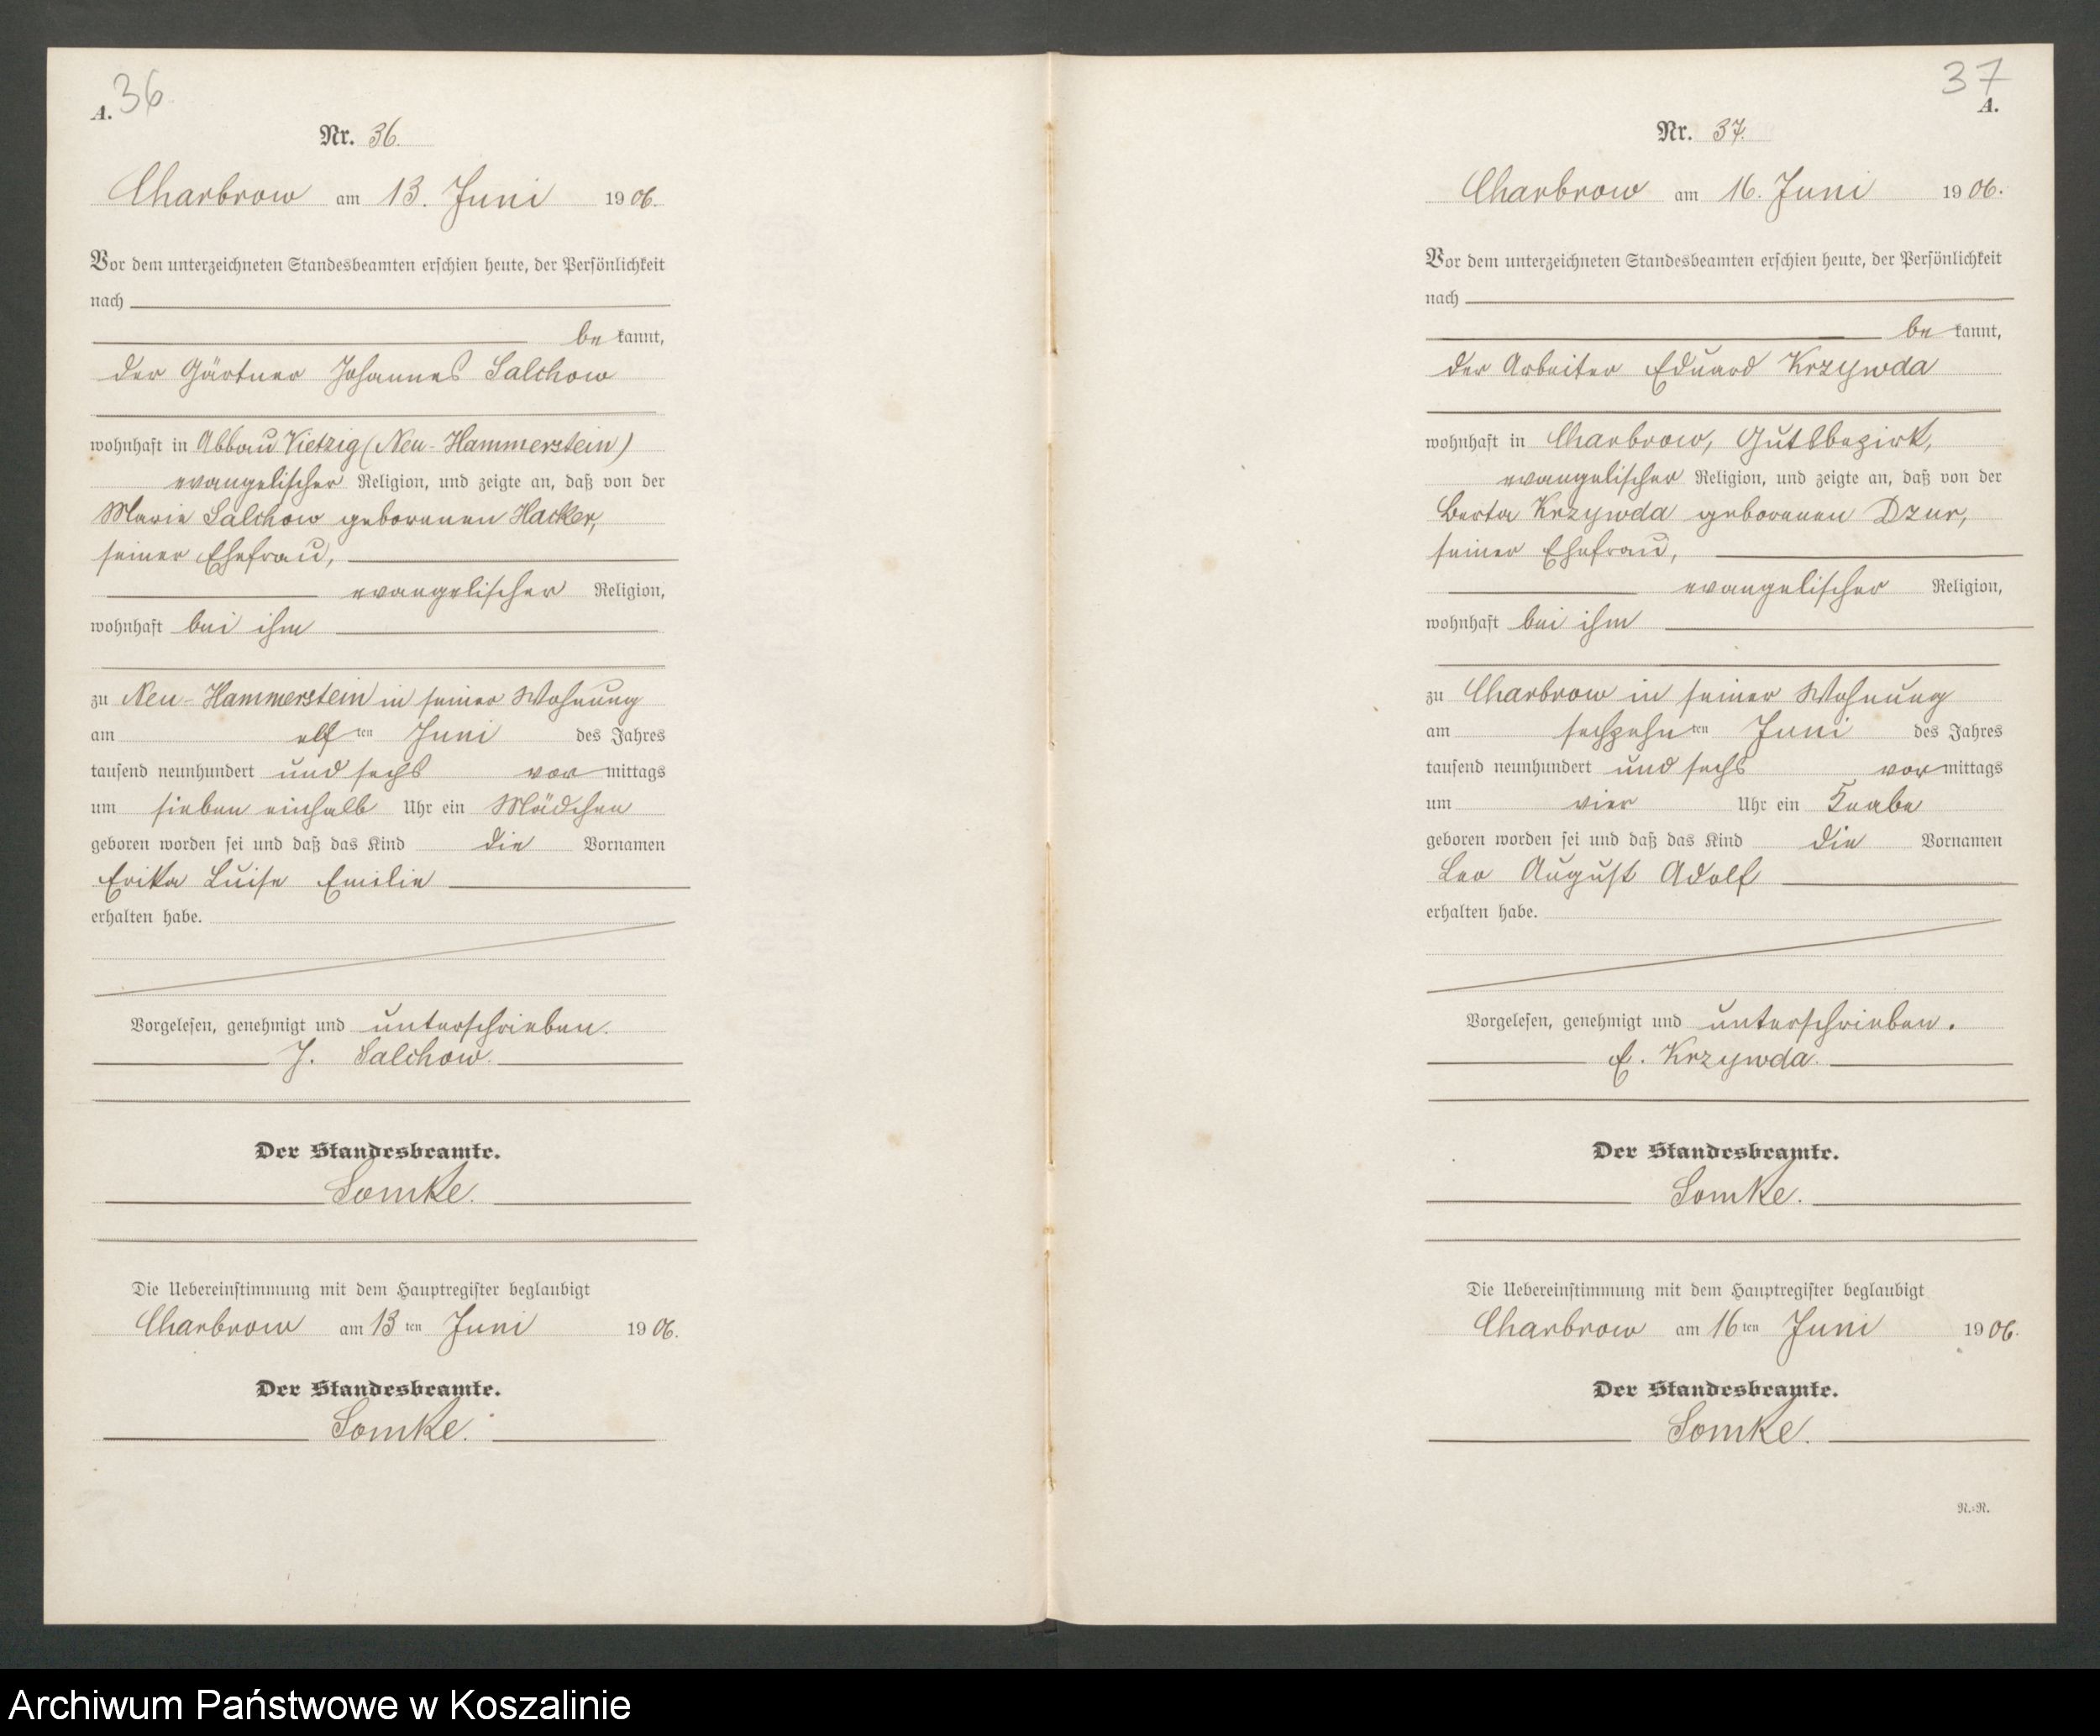 36
A.
Nr. 36.
Charbrow am 13. Juni 1906.
Vor dem unterzeichneten Standesbeamten erschien heute, der Persönlichkeit
nach
be kannt,
der Gärtner Johannes Salchow
wohnhaft in Abbau Vietzig (Neu-Hammerstein)
evangelischer Religion, und zeigte an, daß von der
Marie Salchow geborenen Hacker,
seiner Ehefrau,
evangelischer Religion,
wohnhaft bei ihm
zu Neu-Hammerstein in seiner Wohnung
am elf ten Juni des Jahres
tausend neunhundert und sechs vor mittags
um sieben einhalb Uhr ein Mädchen
geboren worden sei und daß das Kind die Vornamen
Erika Luise Emilie
erhalten habe.
Vorgelesen, genehmigt und unterschrieben.
J. Salchow.
Der Standesbeamte.
Somke.
Die Uebereinstimmung mit dem Hauptregister beglaubigt
Charbrow am 13 ten Juni 1906.
Der Standesbeamte.
Somke.
37
A.
Nr. 37.
Charbrow am 16. Juni 1906.
Vor dem unterzeichneten Standesbeamten erschien heute, der Persönlichkeit
nach
be kannt,
der Arbeiter Eduard Krzywda
wohnhaft in Charbrow, Gutsbezirk,
evangelischer Religion, und zeigte an, daß von der
Berta Krzywda geborenen Dzur,
seiner Ehefrau,
evangelischer Religion,
wohnhaft bei ihm
zu Charbrow in seiner Wohnung
am sechzehn ten Juni des Jahres
tausend neunhundert und sechs vor mittags
um vier Uhr ein Knabe
geboren worden sei und daß das Kind die Vornamen
Leo August Adolf
erhalten habe.
Vorgelesen, genehmigt und unterschrieben.
E. Krzywda.
Der Standesbeamte.
Somke.
Die Uebereinstimmung mit dem Hauptregister beglaubigt
Charbrow am 16 ten Juni 1906.
Der Standesbeamte.
Somke.
N.=R.
Archiwum Państwowe w Koszalinie